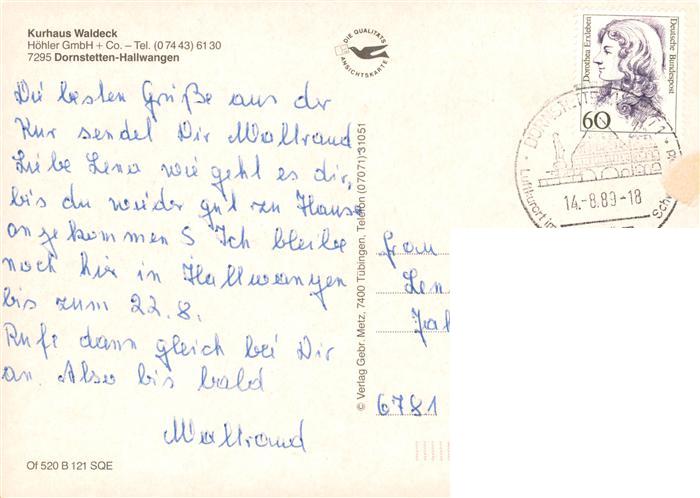 Kurhaus Waldeck
Höhler GmbH + Co. – Tel. (0 74 43) 61 30
7295 Dornstetten-Hallwangen
DIE QUALITÄTS
ANSICHTSKARTE
Dorothea Erxleben
Deutsche Bundespost
60
14.-8.89-18
Luftkurort im
Die besten Grüße aus der
Kur sendet Dir Waltraud
Liebe Lena wie geht es dir,
bis du wieder gut zu Hause
angekommen ? Ich bleibe
noch hier in Hallwangen
bis zum 22.8.
Rufe dann gleich bei Dir
an. Also bis bald
Waltraud
© Verlag Gebr. Metz, 7400 Tübingen, Telefon (07071) 31051
Frau
Len
6781
Of 520 B 121 SQE